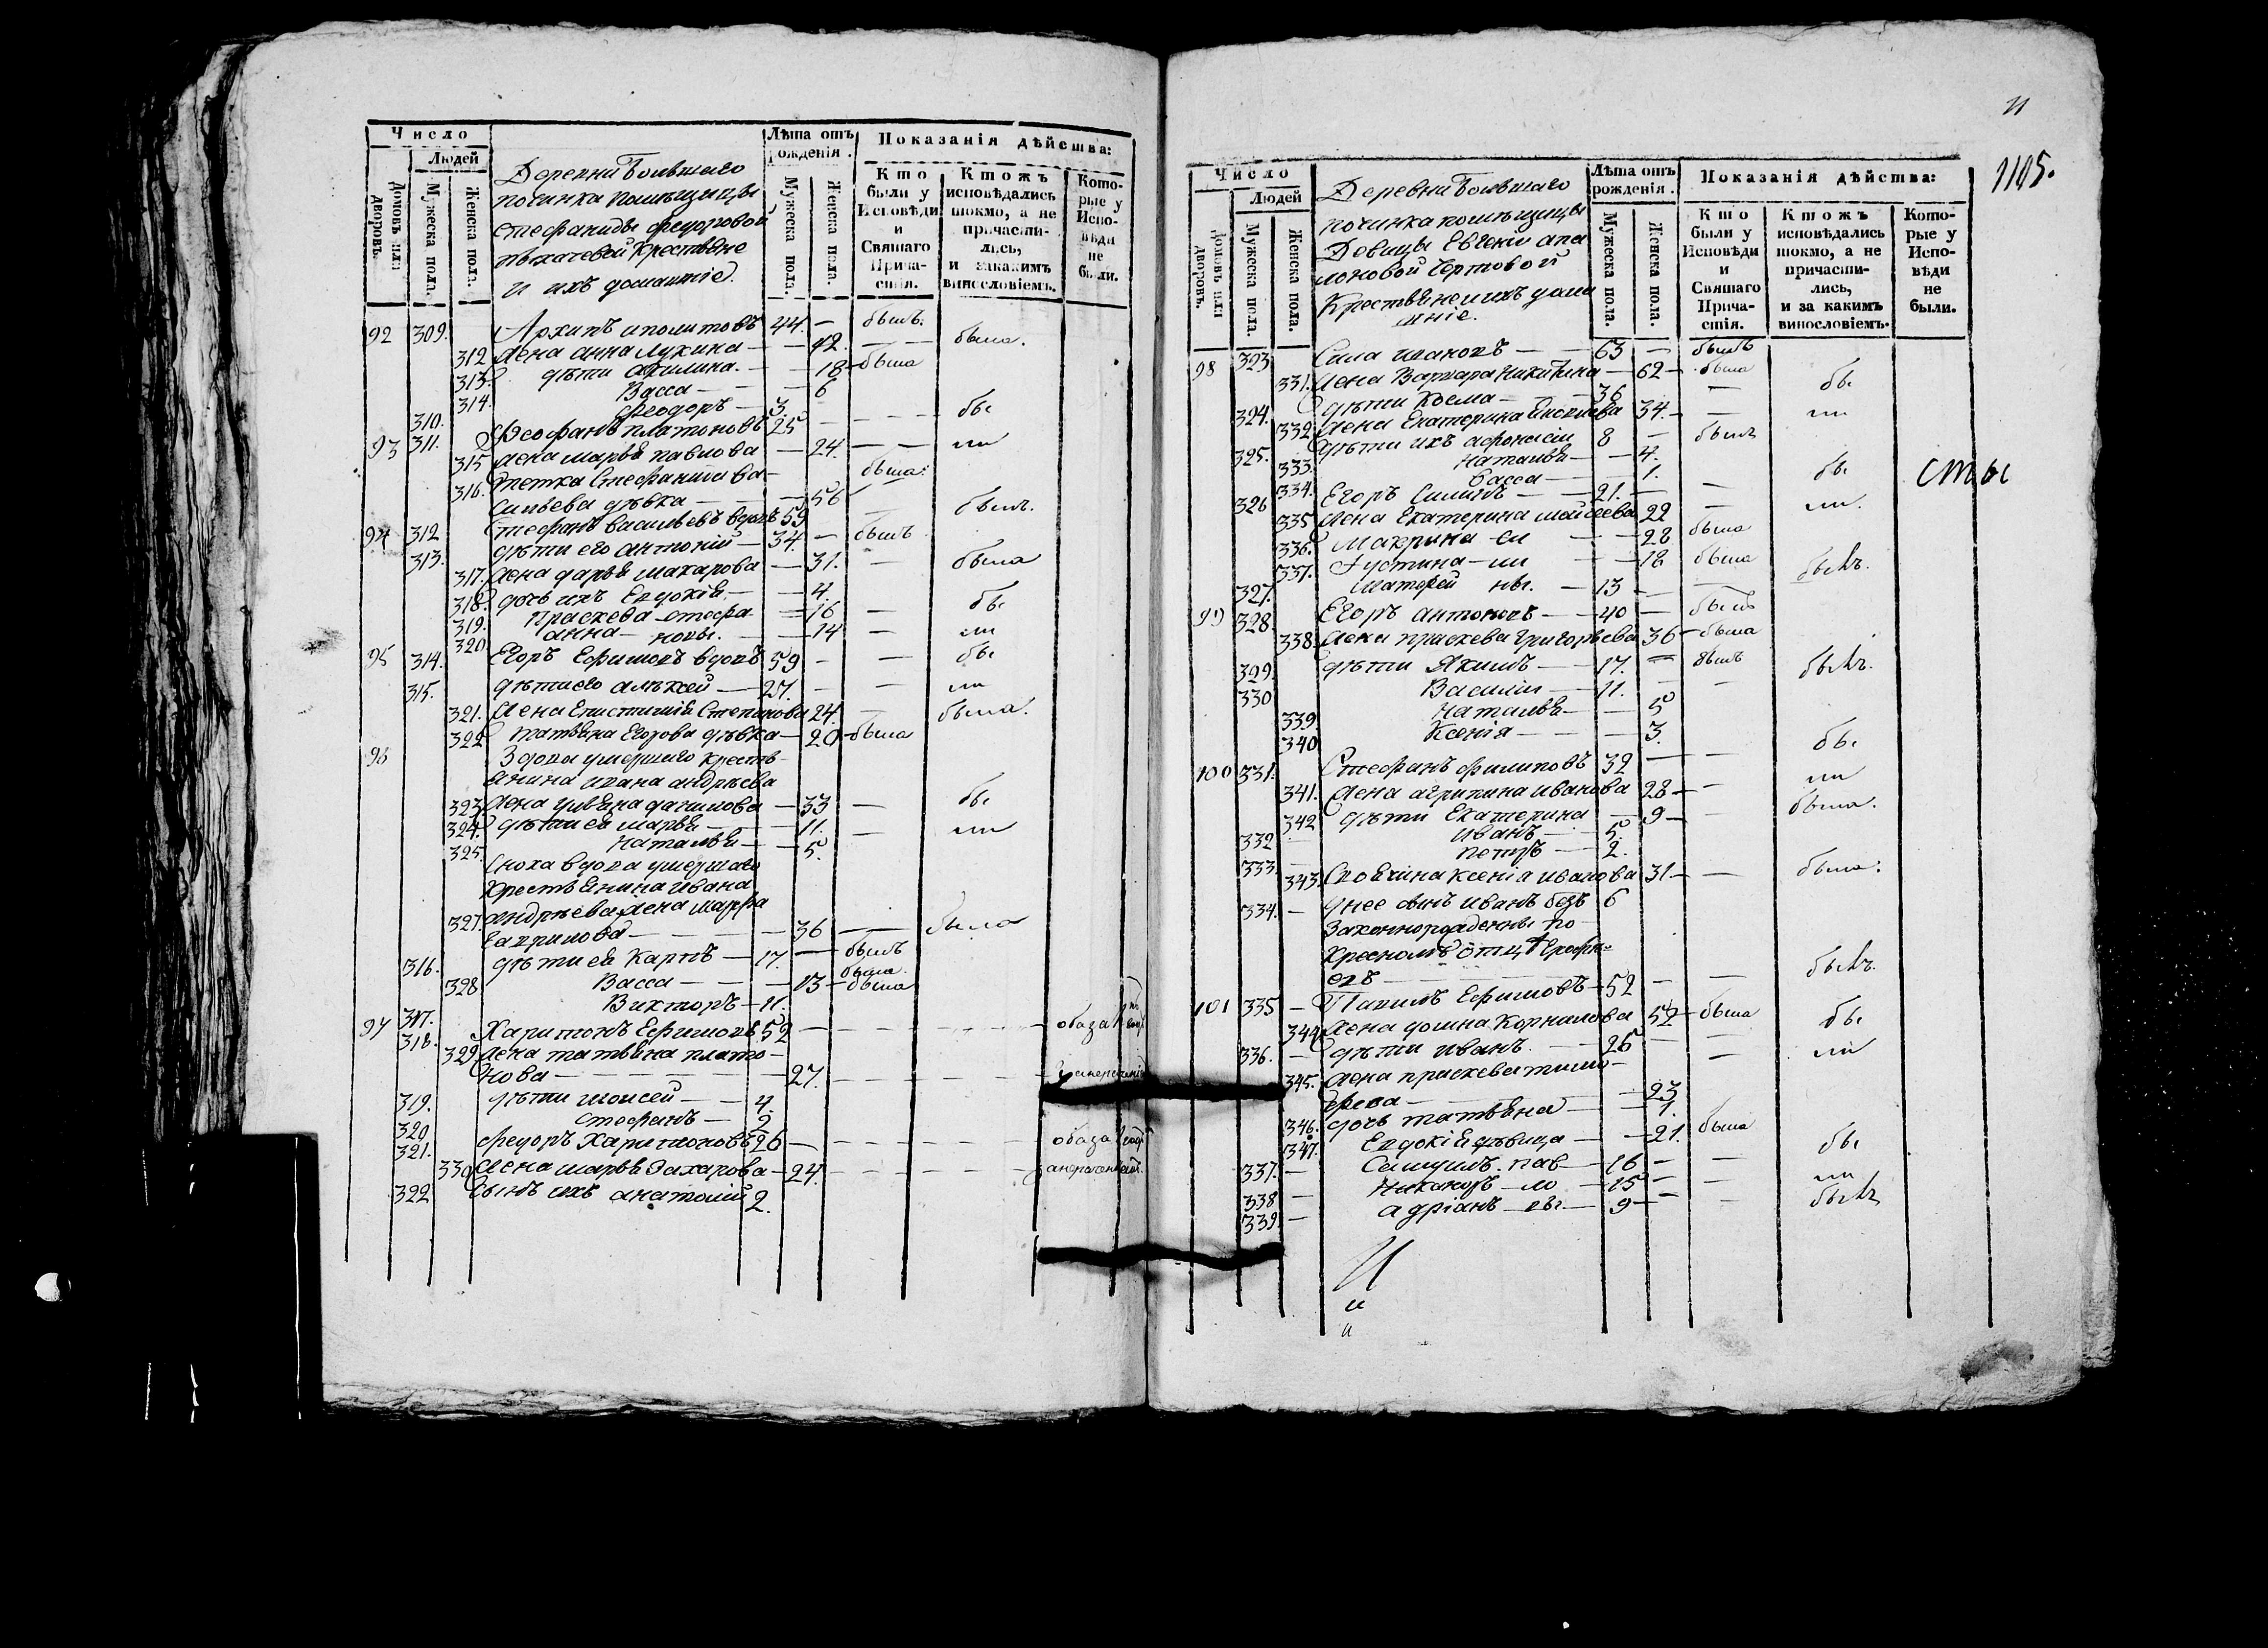 Число
Людей
Домовъ или дворовъ.
Мужеска пола.
Женска пола.
Деревни Большаго
починка помѣщицы
Стефаниды Федоровой
Крестьяне
и ихъ домашніе.
Лѣта отъ рожденія.
Мужеска пола.
Женска пола.
Показанія дѣйства:
Кто были у Исповѣди и Святаго Причастія.
Ктожъ исповѣдались токмо, а не причастились, и закакимъ винословіемъ.
Которые у Исповѣди не были.
92 309. Архипъ иполитовъ 44. — былъ.
312 Жена анна Лукина — 42. — — была.
313. дѣти акилина — 18 — была
314. Васса — 6
310. Феодоръ — 3.
93 311. Феофанъ платоновъ 25 — — бы
315 Жена марья павлова — 24. — — ли
316. тетка Стефанида Ва-
сильева дѣвка — 56 была.
94 312 Стефанъ васильевъ вдовъ 59 — былъ.
313. дѣти его антоній — 34. — былъ
317. Жена дарья макарова — 31. — была
318. дочь ихъ Евдокія — 4.
319. праскева стефа- — 16 — бы
320. анна — новы. — 14 — ли
95 314. Егоръ Ефимовъ вдовъ 59 — — бы
315. дѣти его алѣксей — 27. — — ли
321. Жена Епистимія Степанова 24. — была.
322 татьяна Егорова дѣвка — 20 — была
96 Вдова умершаго кресть-
янина ивана андрѣева
323. Жена ульяна данилова — 33 — бы
324. дѣти ея марья — 11. — ли
325. наталья — 5.
сноха вдова умершаго
крестьянина ивана
327. андрѣева жена марфа
гаврилова — 36 — была
316. дѣти ея Карпъ — 17. — былъ
328 Васса — 13 — была
317. Викторъ — 11.
97 318. Харитонъ Ефимовъ 52 — —
329. Жена татьяна плато-
нова — 27. — —
319. дѣти моисей — 4.
320 стефанъ — 2
321. федоръ Харитоновъ 26 — —
330 Жена марья Захарова — 24. — —
322 Сынъ ихъ анатолій 2.
11
1105.
Число
Людей
Домовъ или дворовъ.
Мужеска пола.
Женска пола.
Деревни Большаго
починка помѣщицы
Девицы Евгеніи апа
лоновой Чертовой
Крестьяне и ихъ дома
шніе.
Лѣта отъ рожденія.
Мужеска пола.
Женска пола.
Показанія дѣйства:
Кто были у Исповѣди и Святаго Причастія.
Ктожъ исповѣдались токмо, а не причастились, и за какимъ винословіемъ.
Которые у Исповѣди не были.
98 323 Сила ивановъ — 63 — былъ
331. Жена Варвара Никитина — 62 — была
324. дѣти Косма — 36 — бы
332 Жена Екатерина 34. — ли
325. дѣти ихъ афонасій 8 — былъ
333. наталья — 4.
334. Васса — 1.
326 Егоръ Силинъ — 21. — — бы
сты
335 Жена Екатерина мойсеева 22 — ли.
336. Макрина си — 28 была
337. Густина — ли — 18 была
327. матфей ны. — 13 — былъ.
99 328. Егоръ антоновъ — 40 — былъ
338. Жена праскева григорьева 36 — была
329. дѣти Якимъ — 17. — былъ
330 Василій — 11. — — былъ.
339 наталья — 5
340 Ксенія — 3.
100 331. Стефанъ филиповъ 32 — — бы
341. Жена агрипина иванова 28 — — ли
342 дѣти Екатерина — 9 — была.
332 иванъ — 5.
333. петръ — 2.
343. Своячина ксенія иванова 31 — — была.
334. — у нее сынъ иванъ без 6
законнорожденны по
кресномъ отцѣ
былъ.
101 335 — Павилъ Ефимовъ — 52 —
344 Жена домна Корнилова 52 — была
336. — дѣти иванъ. — 26 — — бы
345. Жена праскева тимо-
феева — 23 — ли
346. дочь татьяна — 1.
347. Евдокія дѣвица — 21. была
337. — Самуилъ. пав — 16 — — бы
338 — Никаноръ — ло — 15 — — ли
339. — адріанъ — вы — 9 — — былъ